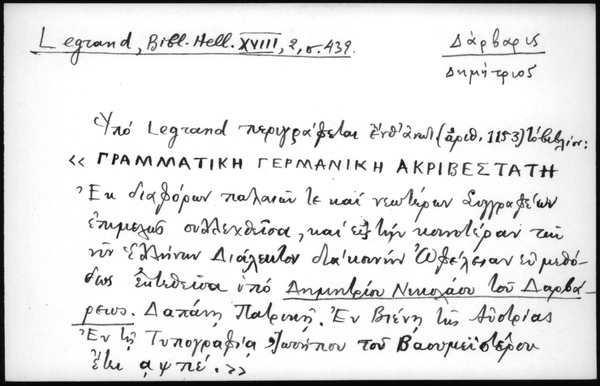 Legrand, Bibl. Hell. XVIII, 2, σ. 439.
Δάρβαρις
Δημήτριος
Ὑπό Legrand περιγράφεται ἐνθ' ἀνωτ. (ἀριθ. 1153) τό βιβλίον:
«ΓΡΑΜΜΑΤΙΚΗ ΓΕΡΜΑΝΙΚΗ ΑΚΡΙΒΕΣΤΑΤΗ
Ἐκ διαφόρων παλαιῶν τε καί νεωτέρων Συγγραφέων
ἐπιμελῶς συλλεχθεῖσα, καί εἰς τήν κοινοτέραν τῶν
νῦν Ἑλλήνων Διάλεκτον διά κοινήν Ὠφέλειαν εὐμεθό-
δως ἐκτεθεῖσα ὑπό Δημητρίου Νικολάου τοῦ Δαρβά-
ρεως. Δαπάνῃ Πατρικῇ. Ἐν Βιέννῃ τῆς Αὐστρίας
Ἐν τῇ Τυπογραφίᾳ Ἰωσήπου τοῦ Βαουμεϊστέρου
ἔτει αψπέ.»